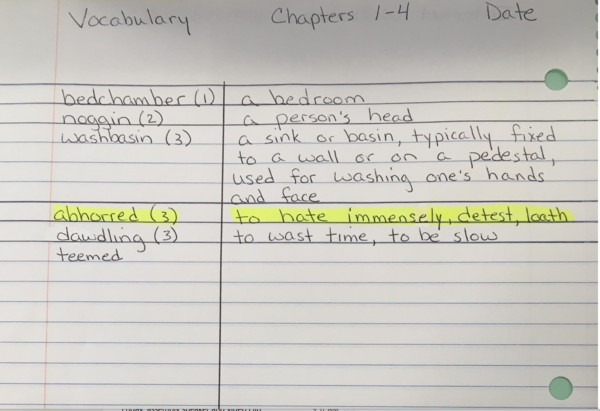 Vocabulary Chapters 1-4 Date
bedchamber (1) a bedroom
noggin (2) a person's head
washbasin (3) a sink or basin, typically fixed
to a wall or on a pedestal,
used for washing one's hands
and face
abhorred (3) to hate immensely, detest, loath
dawdling (3) to wast time, to be slow
teemed